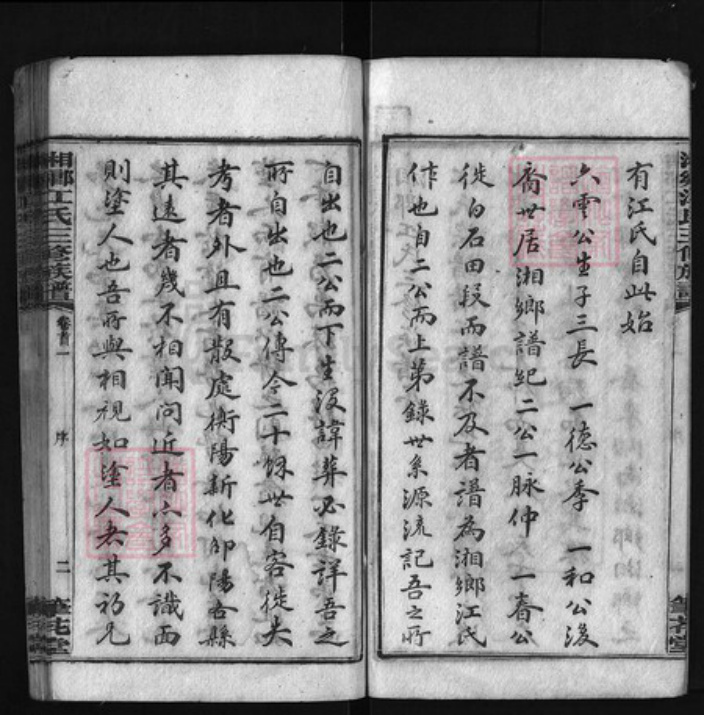 有江氏自此始
六雲公生子三長 一德公季 一和公後
裔世居湘鄉譜紀二公一脉仲 一春公
徙白石田段而譜不及者譜為湘鄉江氏
作也自二公而上第錄世系源流記吾之所
自出也二公而下生沒諱葬必錄詳吾之
所自出也二公傳今二十餘世自客徙失
考者外且有散處衡陽新化邵陽各縣
其遠者幾不相聞問近者六多不識面
則塗人也吾所與相視如塗人者其初兄
湘鄉江氏三修族譜
卷首一
序
二
筆花堂